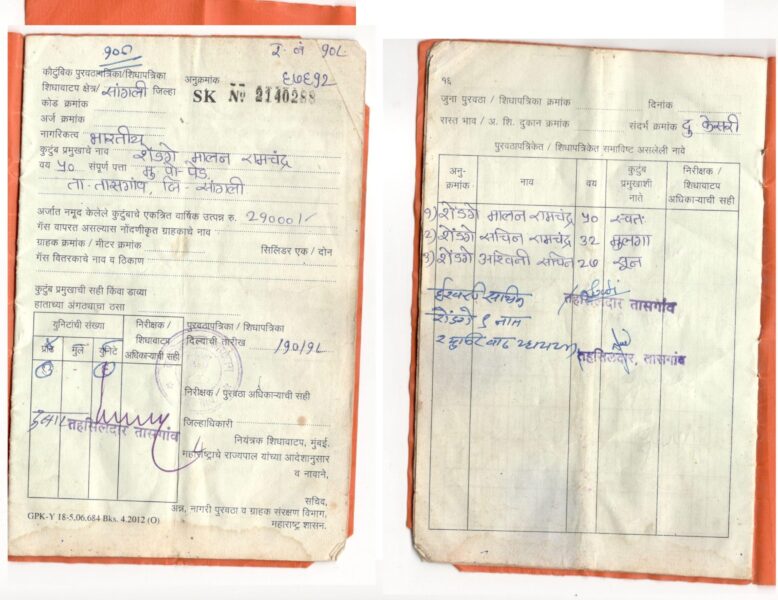 १०८
र. नं १०८
कौटुंबिक पुरवठापत्रिका/शिधापत्रिका अनुक्रमांक
शिधावाटप क्षेत्र/ सांगली जिल्हा ६७६९२
कोड क्रमांक SK № 2140288
अर्ज क्रमांक
नागरिकत्व भारतीय
कुटुंब प्रमुखाचे नाव शेंडगे मालन रामचंद्र
वय ५० संपूर्ण पत्ता मु. पो. पेड,
ता-तासगांव, जि- सांगली
अर्जात नमूद केलेले कुटुंबाचे एकत्रित वार्षिक उत्पन्न रु. 29000/-
गॅस वापरत असल्यास नोंदणीकृत ग्राहकाचे नाव
ग्राहक क्रमांक / मीटर क्रमांक सिलिंडर एक / दोन
गॅस वितरकाचे नाव व ठिकाण
कुटुंब प्रमुखाची सही किंवा डाव्या
हाताच्या अंगठ्याचा ठसा
युनिटांची संख्या
प्रौढ मुले युनिटे
निरीक्षक /
शिधावाटप
अधिकाऱ्याची सही
पुरवठापत्रिका / शिधापत्रिका
दिल्याची तारीख
निरीक्षक / पुरवठा अधिकाऱ्याची सही
जिल्हाधिकारी
तहसिलदार तासगांव
नियंत्रक शिधावाटप, मुंबई.
महाराष्ट्राचे राज्यपाल यांच्या आदेशानुसार
व नावाने,
सचिव,
अन्न, नागरी पुरवठा व ग्राहक संरक्षण विभाग,
महाराष्ट्र शासन.
GPK-Y 18-5,06,684 Bks. 4.2012 (O)
१६
जुना पुरवठा / शिधापत्रिका क्रमांक दिनांक
रास्त भाव / अ. शि. दुकान क्रमांक संदर्भ क्रमांक दु केसरी
पुरवठापत्रिकेत / शिधापत्रिकेत समाविष्ट असलेली नावे
अनु-
क्रमांक
नाव
वय
कुटुंब
प्रमुखाशी
नाते
निरीक्षक /
शिधावाटप
अधिकाऱ्याची सही
१) शेंडगे मालन रामचंद्र ५० स्वतः
२) शेंडगे सचिन रामचंद्र 32 मुलगा
३) शेंडगे अश्विनी सचिन २७ सून
ईश्वरी सचिन
तहसिलदार तासगांव
शेंडगे १ नाव
तहसिलदार, तासगांव